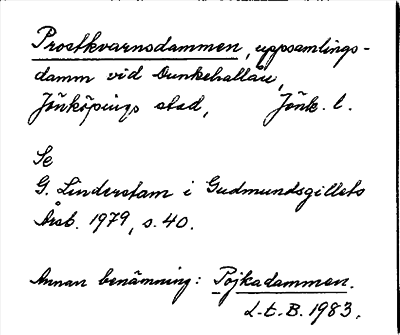 Prostkvarnsdammen, uppsamlings-
damm vid Dunkehallaån,
Jönköpings stad, Jönk. l.
Se
G. Linderstam i Gudmundsgillets
Årsb. 1979, s. 40.
Annan benämning: Pojkadammen.
L-t. B. 1983.